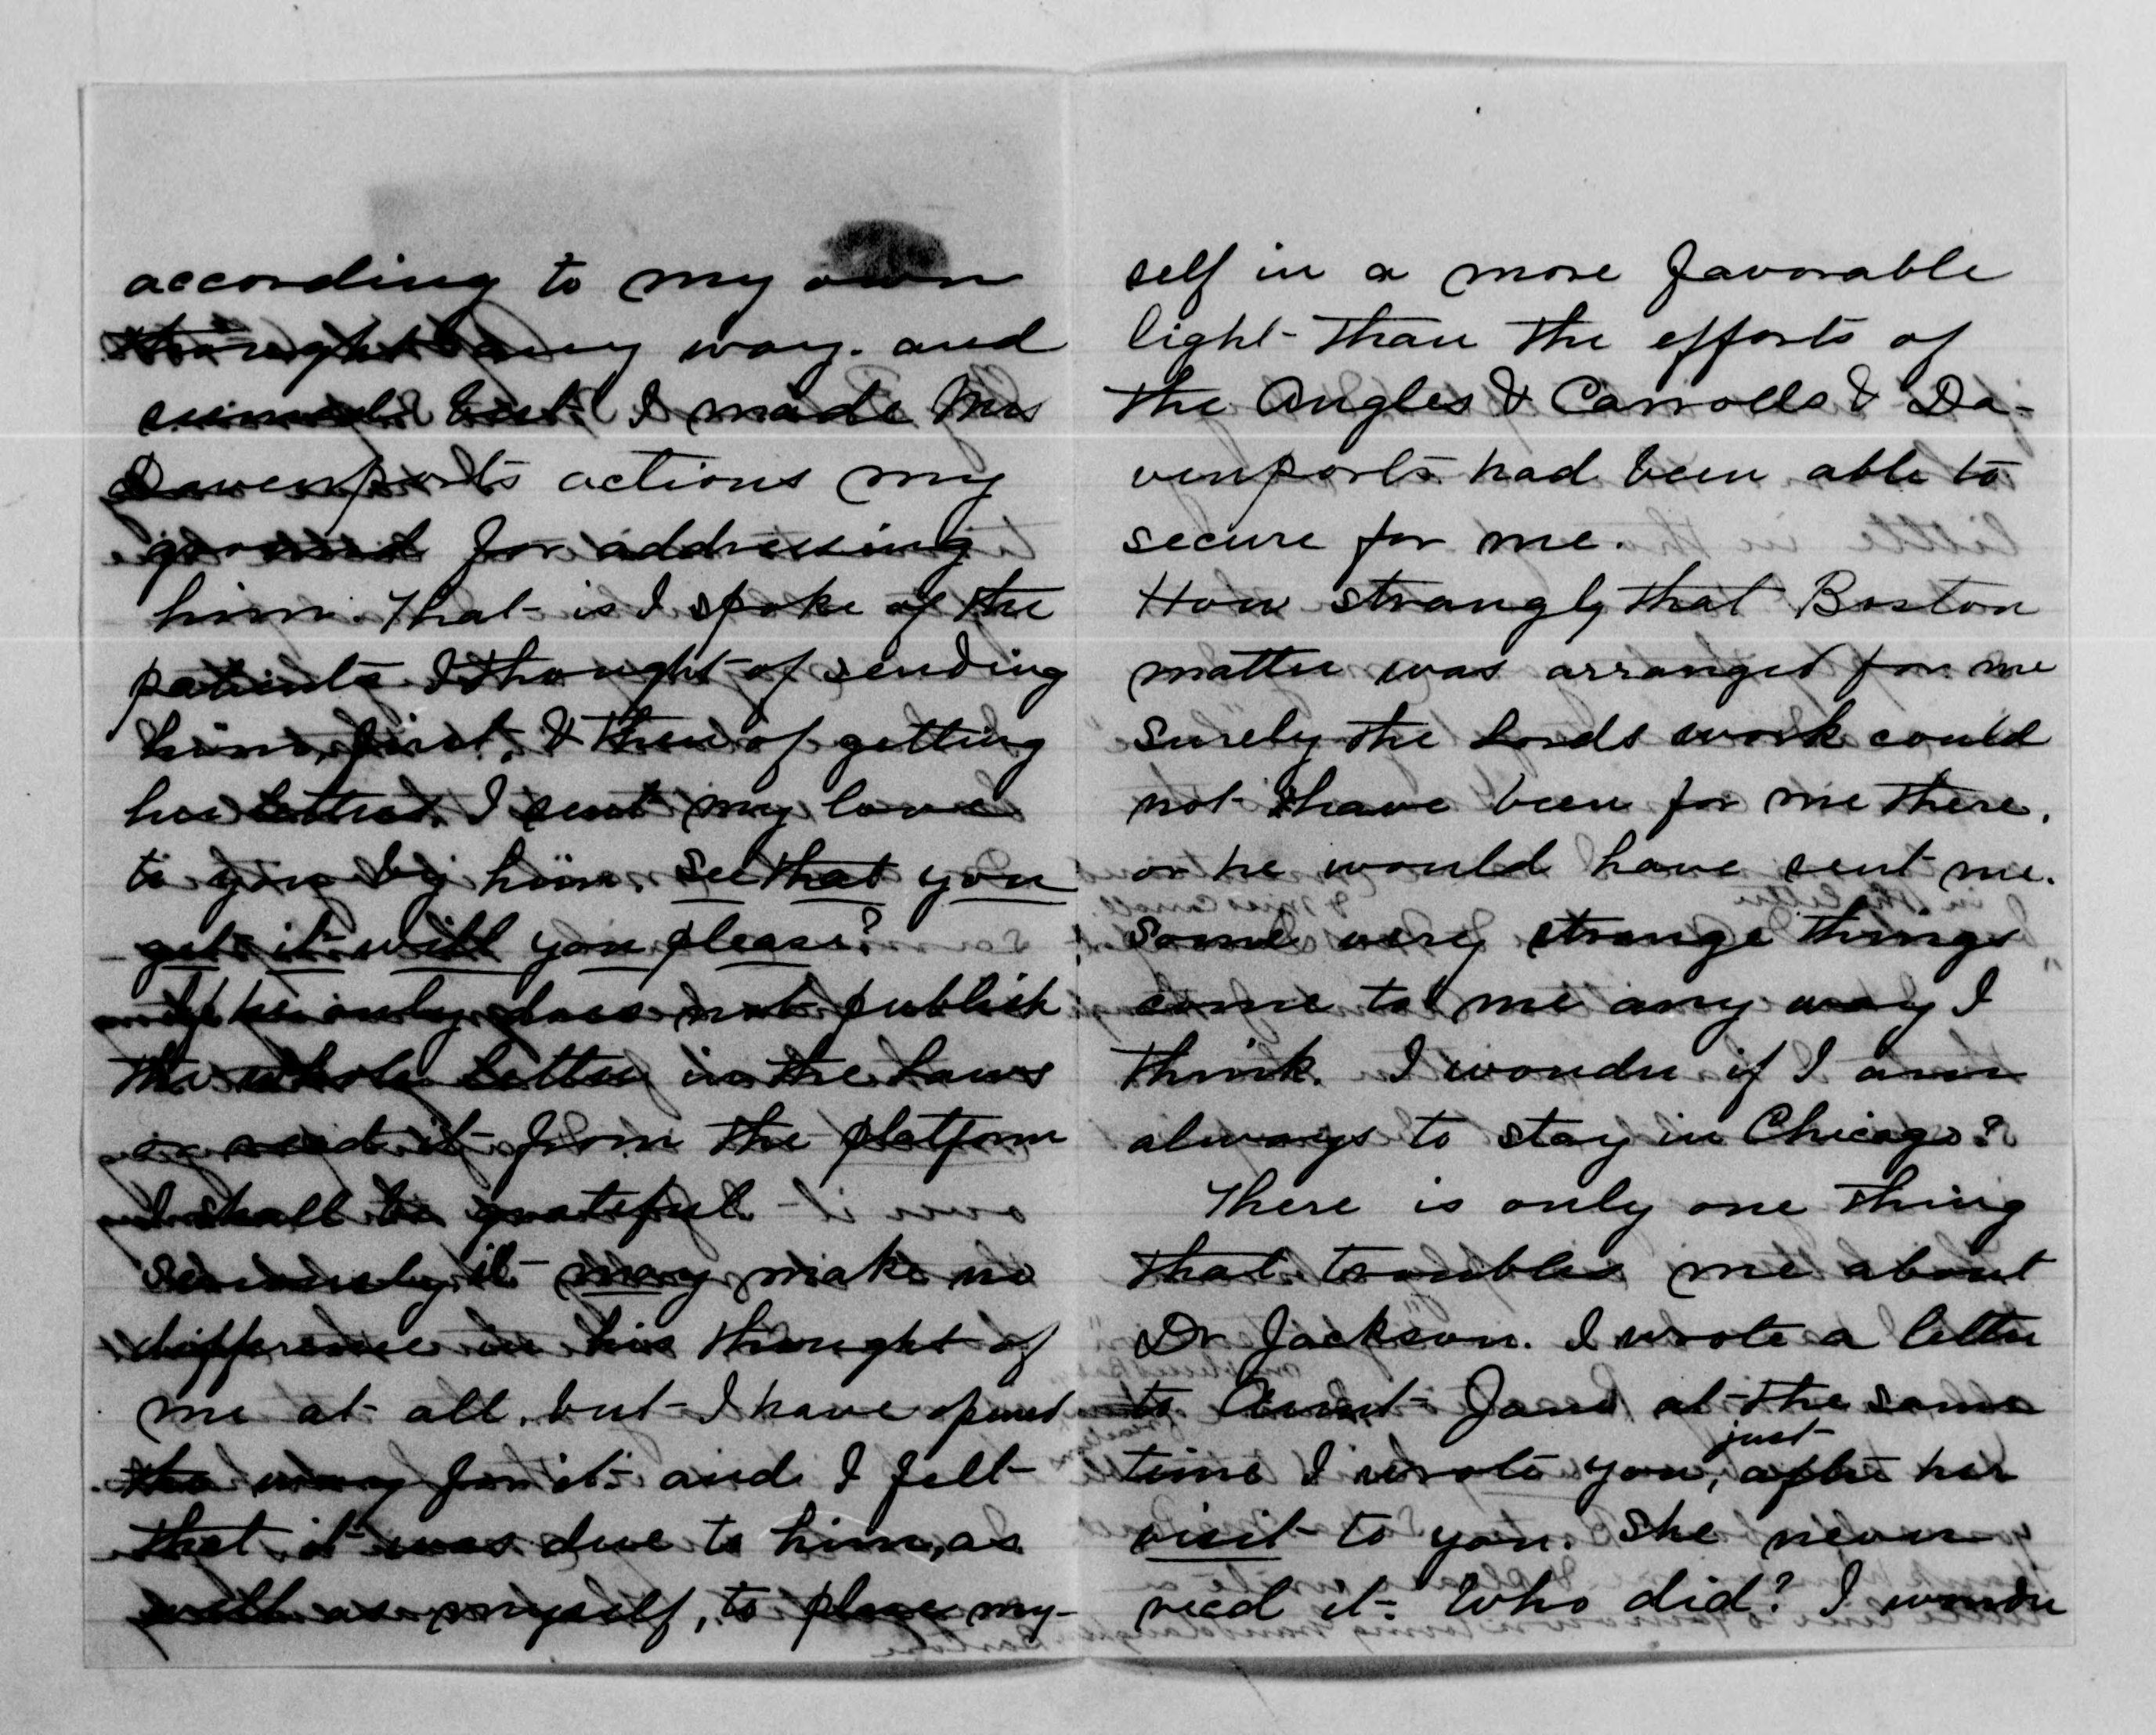 according to my own
thought any way. and
but I made Mrs
Davenports actions my
ground for addressing
him. That is I spoke of the
patients I thought of sending
him, first, & then of getting
her letter. I sent my love
to you by him. See that you
get it will you please?
If he only does not publish
the whole letter in the Laws
or read it from the platform
I shall be grateful
Seriously it may make no
difference in his thought of
me at all, but I have opened
the way for it and I felt
that it was due to him, as
well as myself, to place my-
self in a more favorable
light than the efforts of
the Angles & Carrolls & Da-
venports had been able to
secure for me.
How strangly that Boston
matter was arranged for me
Surely the Lords work could
not have been for me there,
or he would have sent me.
Some very strange things
come to me any way I
think. I wonder if I am
always to stay in Chicago?
There is only one thing
that troubles me about
Dr Jackson. I wrote a letter
to Aunt Jane at the same
time I wrote you, just after her
visit to you. She never
recd it. Who did? I wonder